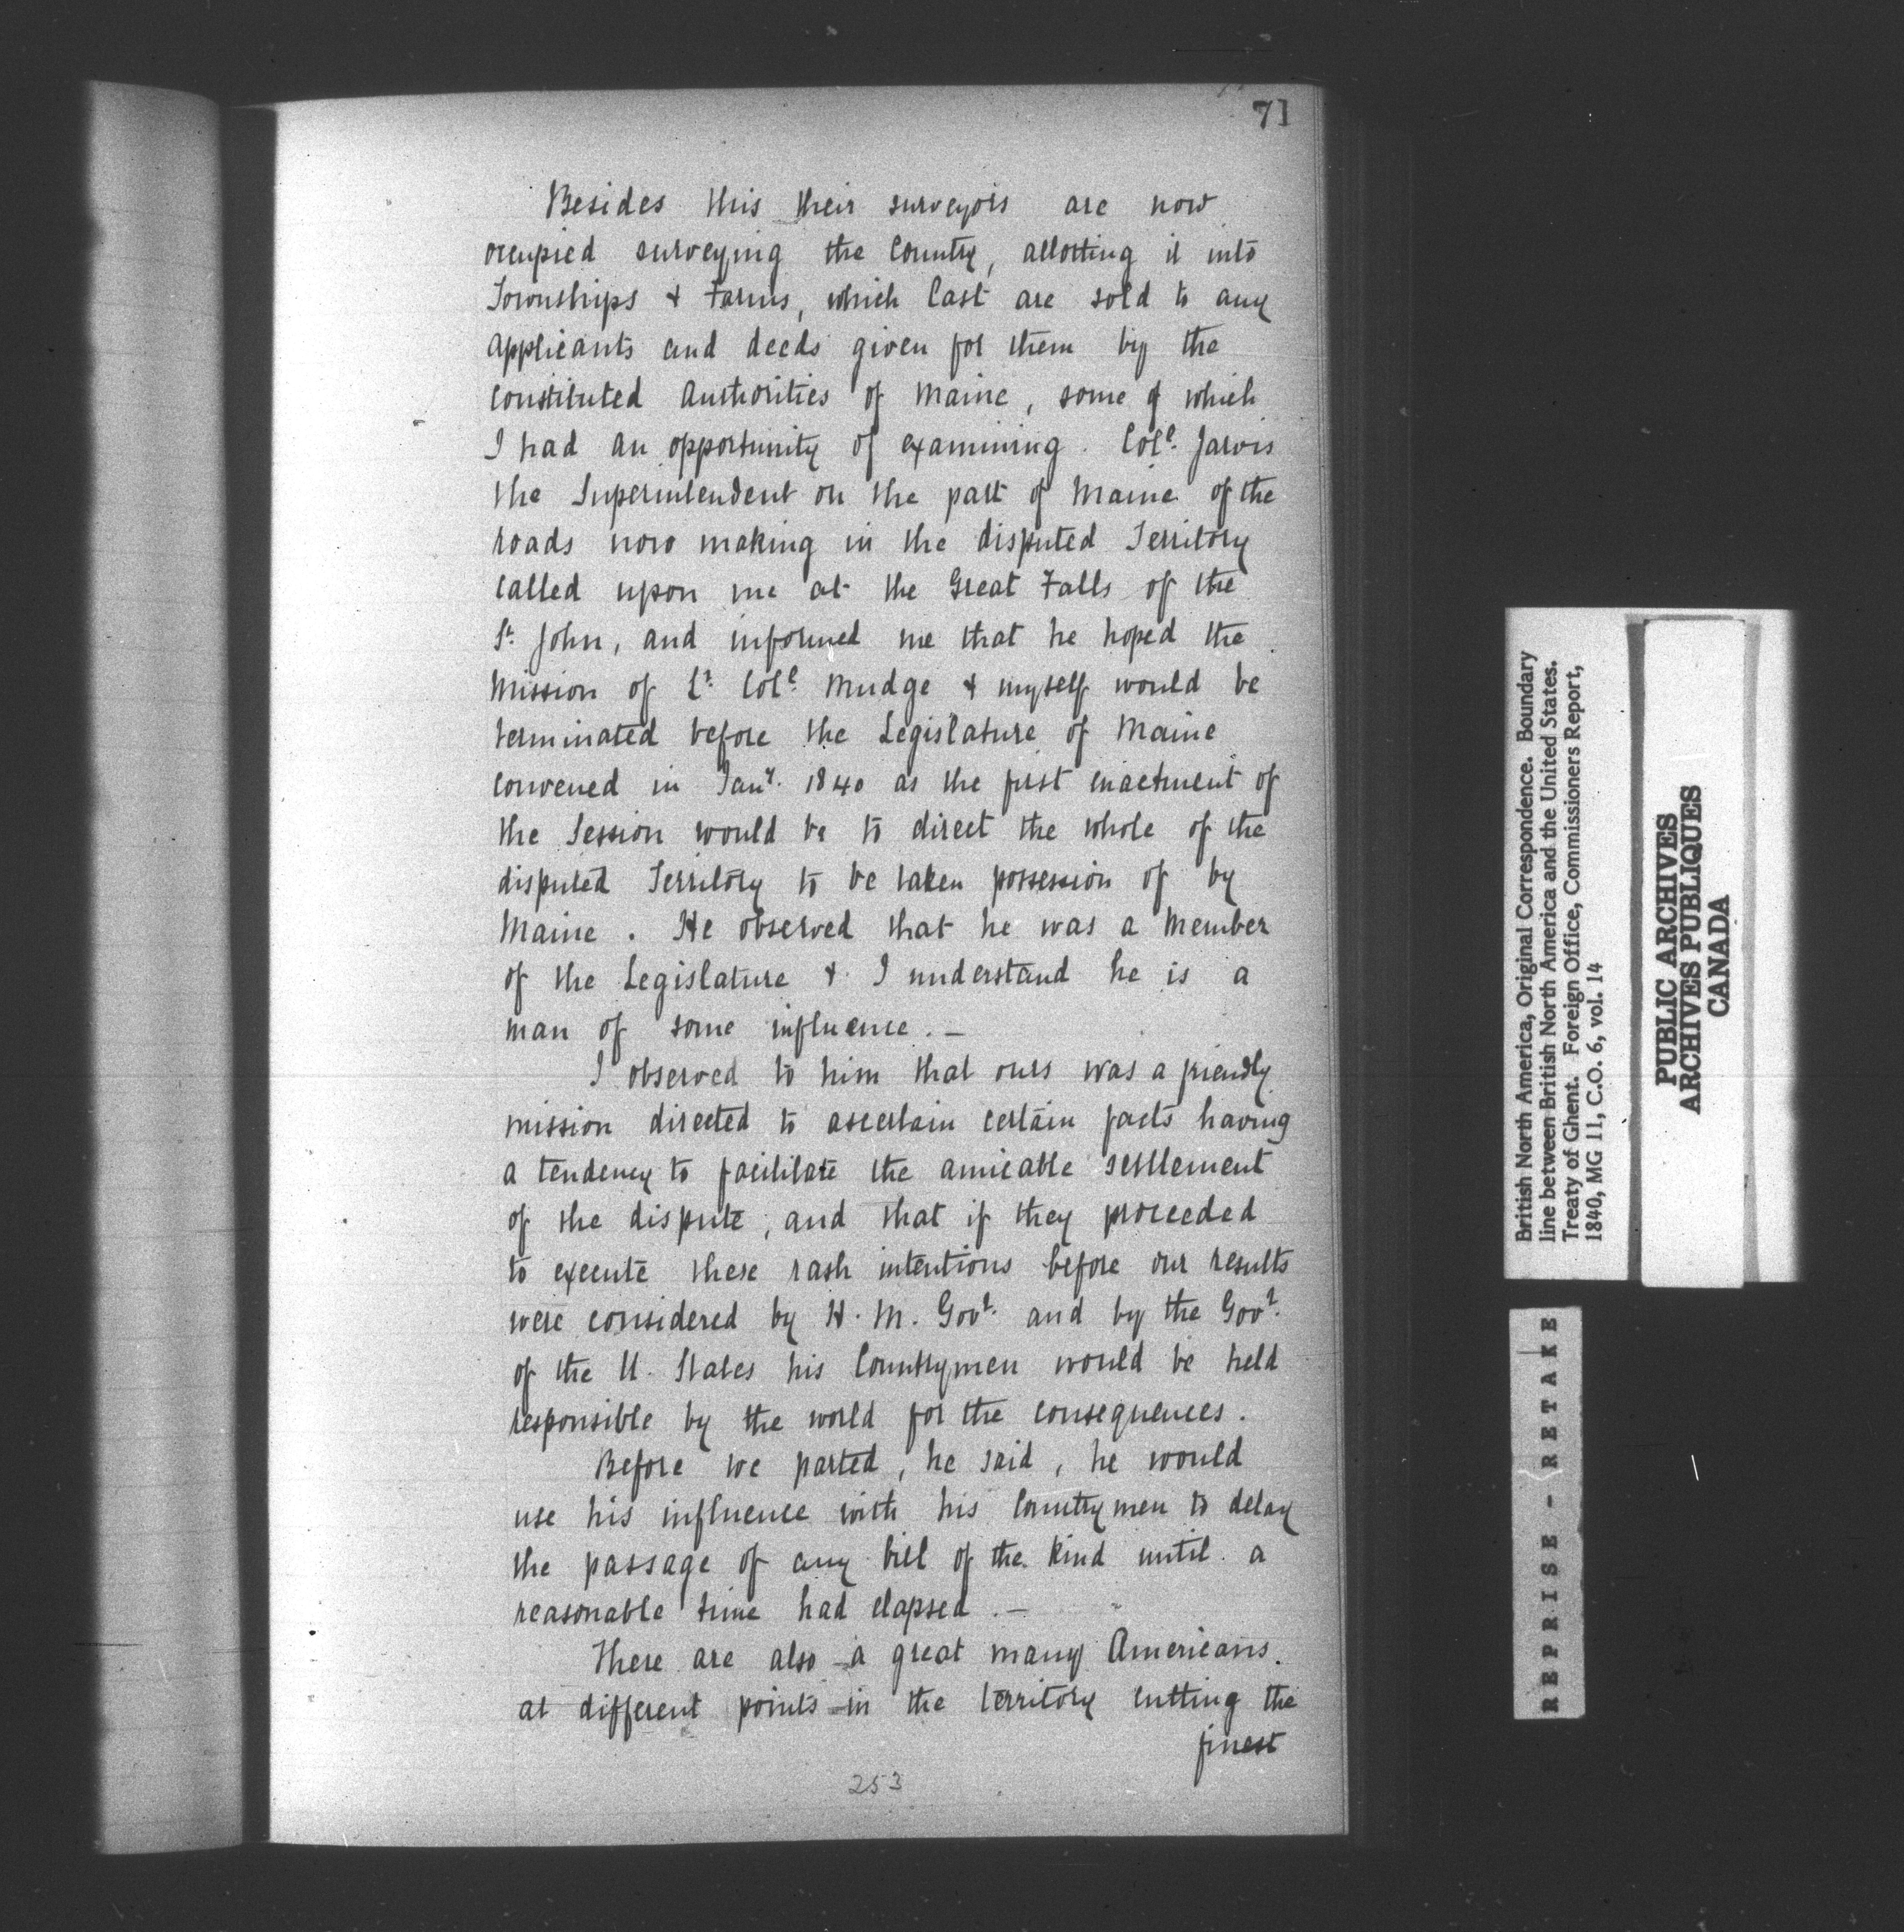 71
Besides this their surveyors are now
occupied surveying the Country, allotting it into
Townships & Farms, which last are sold to any
applicants and deeds given for them by the
constituted Authorities of Maine, some of which
I had an opportunity of examining. Colˡ. Jarvis
the Superintendent on the part of Maine of the
roads now making in the disputed Territory
called upon me at the Great Falls of the
Sᵗ. John, and informed me that he hoped the
Mission of Lᵗ. Colˡ. Mudge & myself would be
terminated before the Legislature of Maine
convened in Janʸ. 1840 as the first enactment of
the Session would be to direct the whole of the
disputed Territory to be taken possession of by
Maine. He observed that he was a Member
of the Legislature & I understand he is a
man of some influence. —
I observed to him that ours was a friendly
mission directed to ascertain certain facts having
a tendency to facilitate the amicable settlement
of the dispute, and that if they proceeded
to execute these rash intentions before our results
were considered by H. M. Govᵗ. and by the Govᵗ.
of the U. States his Countrymen would be held
responsible by the world for the consequences.
Before we parted, he said, he would
use his influence with his Countrymen to delay
the passage of any bill of the kind until a
reasonable time had elapsed. —
There are also a great many Americans
at different points in the territory cutting the
finest
253
British North America, Original Correspondence. Boundary
line between British North America and the United States.
Treaty of Ghent. Foreign Office, Commissioners Report,
1840, MG 11, C.O. 6, vol. 14
PUBLIC ARCHIVES
ARCHIVES PUBLIQUES
CANADA
REPRISE - RETAKE